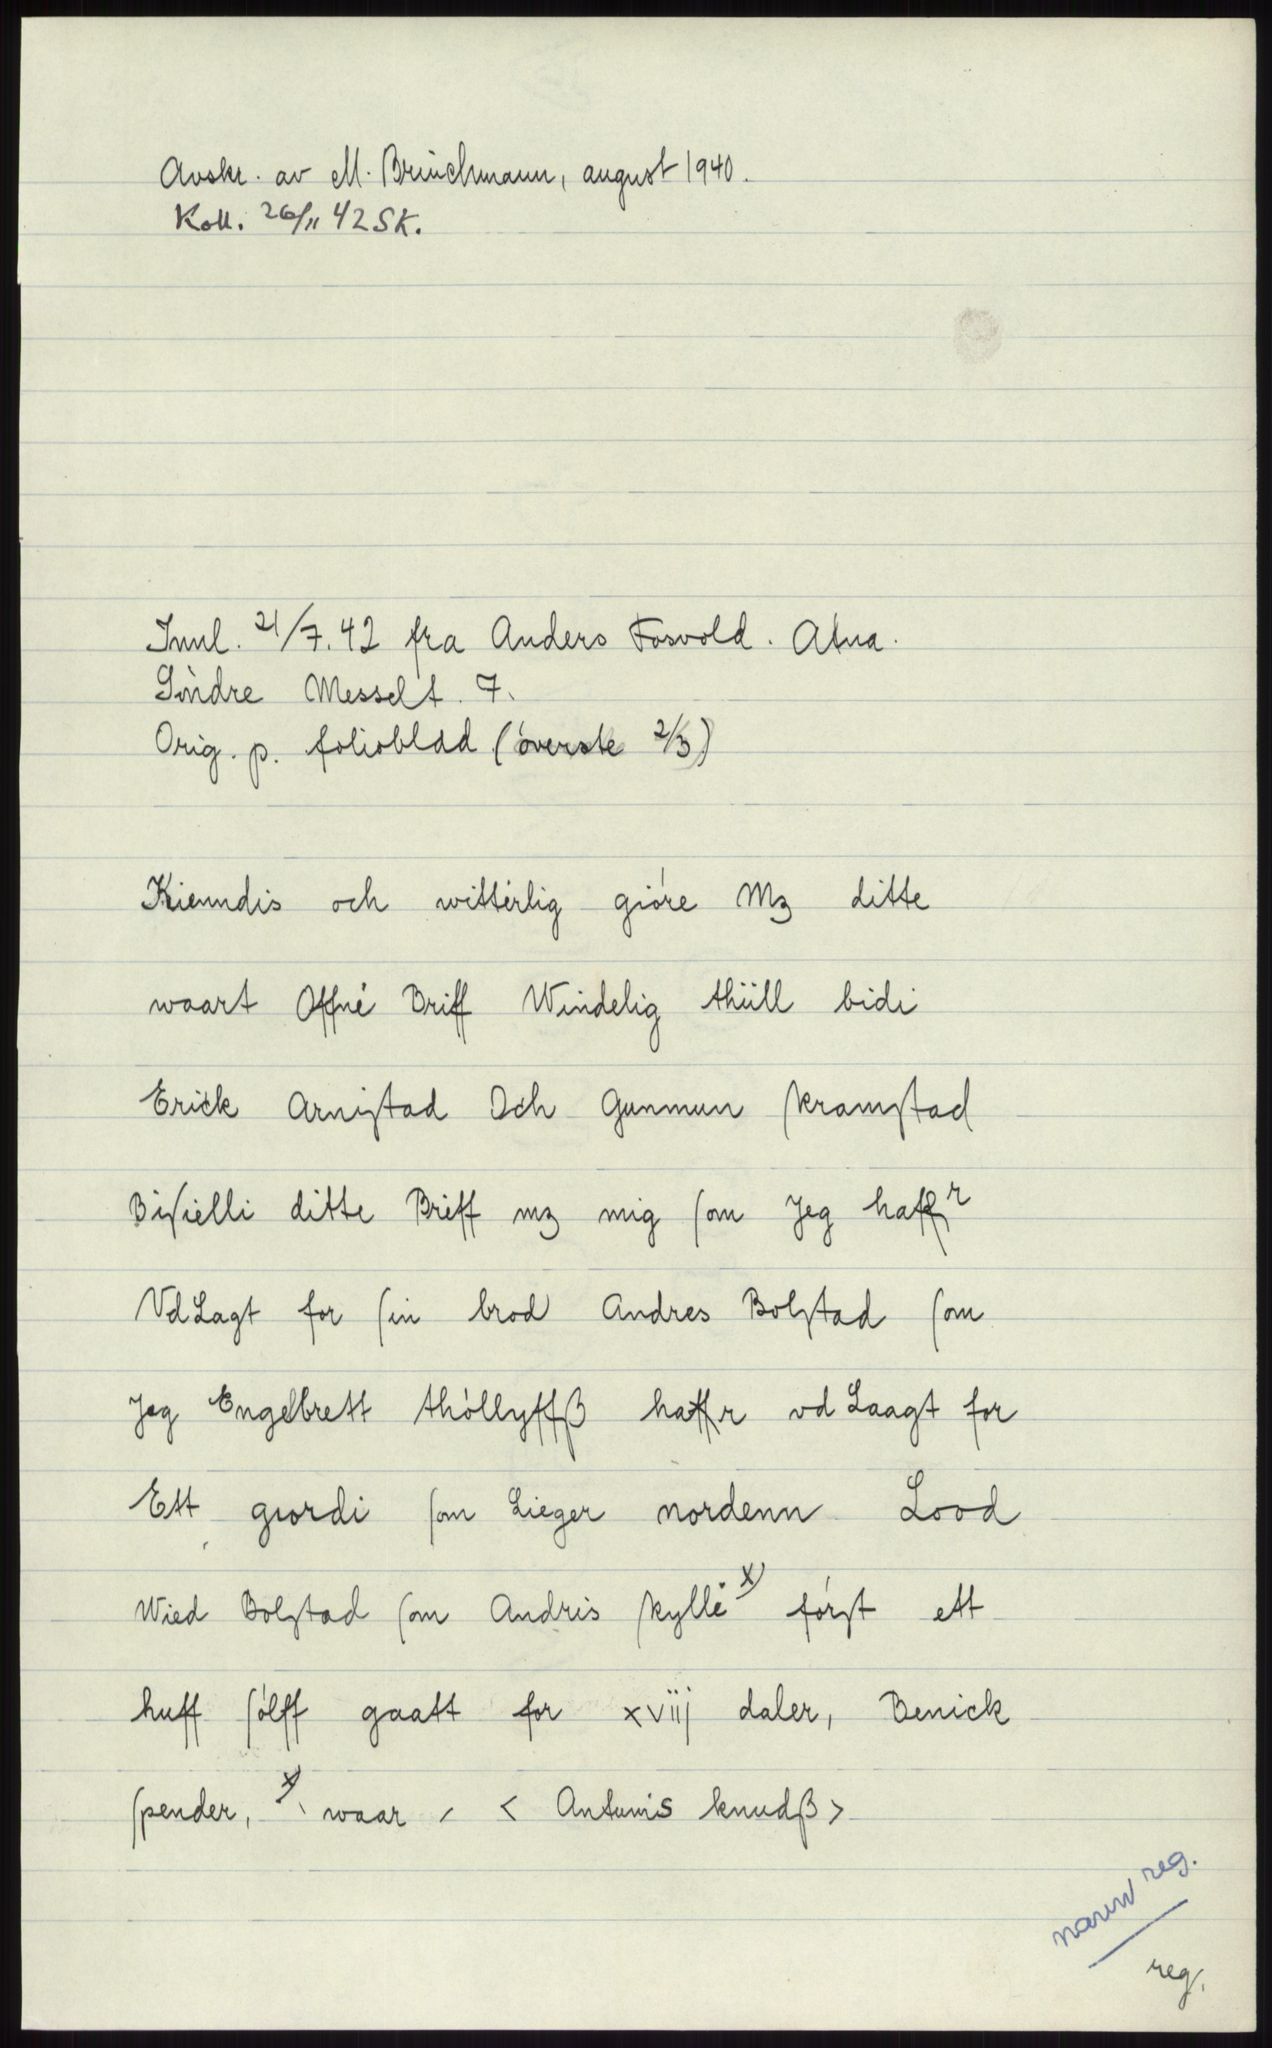 Avskr. av M. Brinchmann, august 1940.
Koll. 26/11 42 SK.
Innl. 21/7.42 fra Anders Fosvold. Atna.
Söndre Messelt. 7.
Orig. p. folioblad (överste 2/3)
Kienndis och witterlig gióre Mʒ ditte
waart Offne Briff Windelig thüll bidi
Erick Arniſtad Och Gunmun ſkramſtad
Biſielli ditte Breff mʒ mig ſom Jeg haffr
Vd Lagt for ſin brod Andres Bolſtad ſom
Jeg Engelbrett thóllyffß haffr vd Laagt for
Ett giordi ſom Lieger nordenn Lood
Wied Bolſtad ſom Andris ſkyllė x) fórſt ett
huff ſólff gaatt for xviij daler, Benick
ſpender, x) waar < Antunis knudß >
navn reg.
reg.